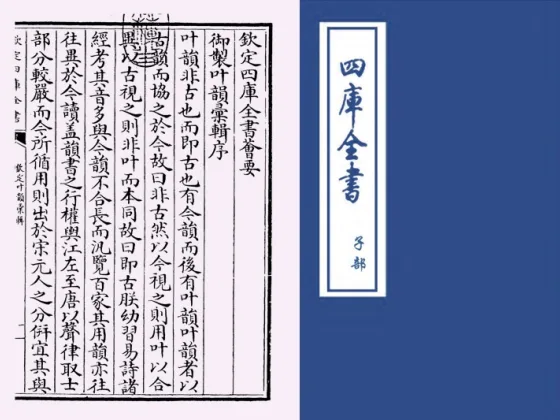 欽定四庫全書薈要
御製叶韻彙輯序
叶韻非古也而即古也有今韻而後有叶韻叶韻者以
古韻而協之於今故曰非古然以今視之則用叶以合
異以古視之則非叶而本同故曰即古朕幼習易詩諸
經考其音多與今韻不合長而汎覽百家其用韻亦往
往異於今讀蓋韻書之行權輿江左至唐以聲律取士
部分較嚴而今所循用則出於宋元人之分併宜其與
欽定四庫全書
欽定叶韻彙輯
一
四庫全書
子部